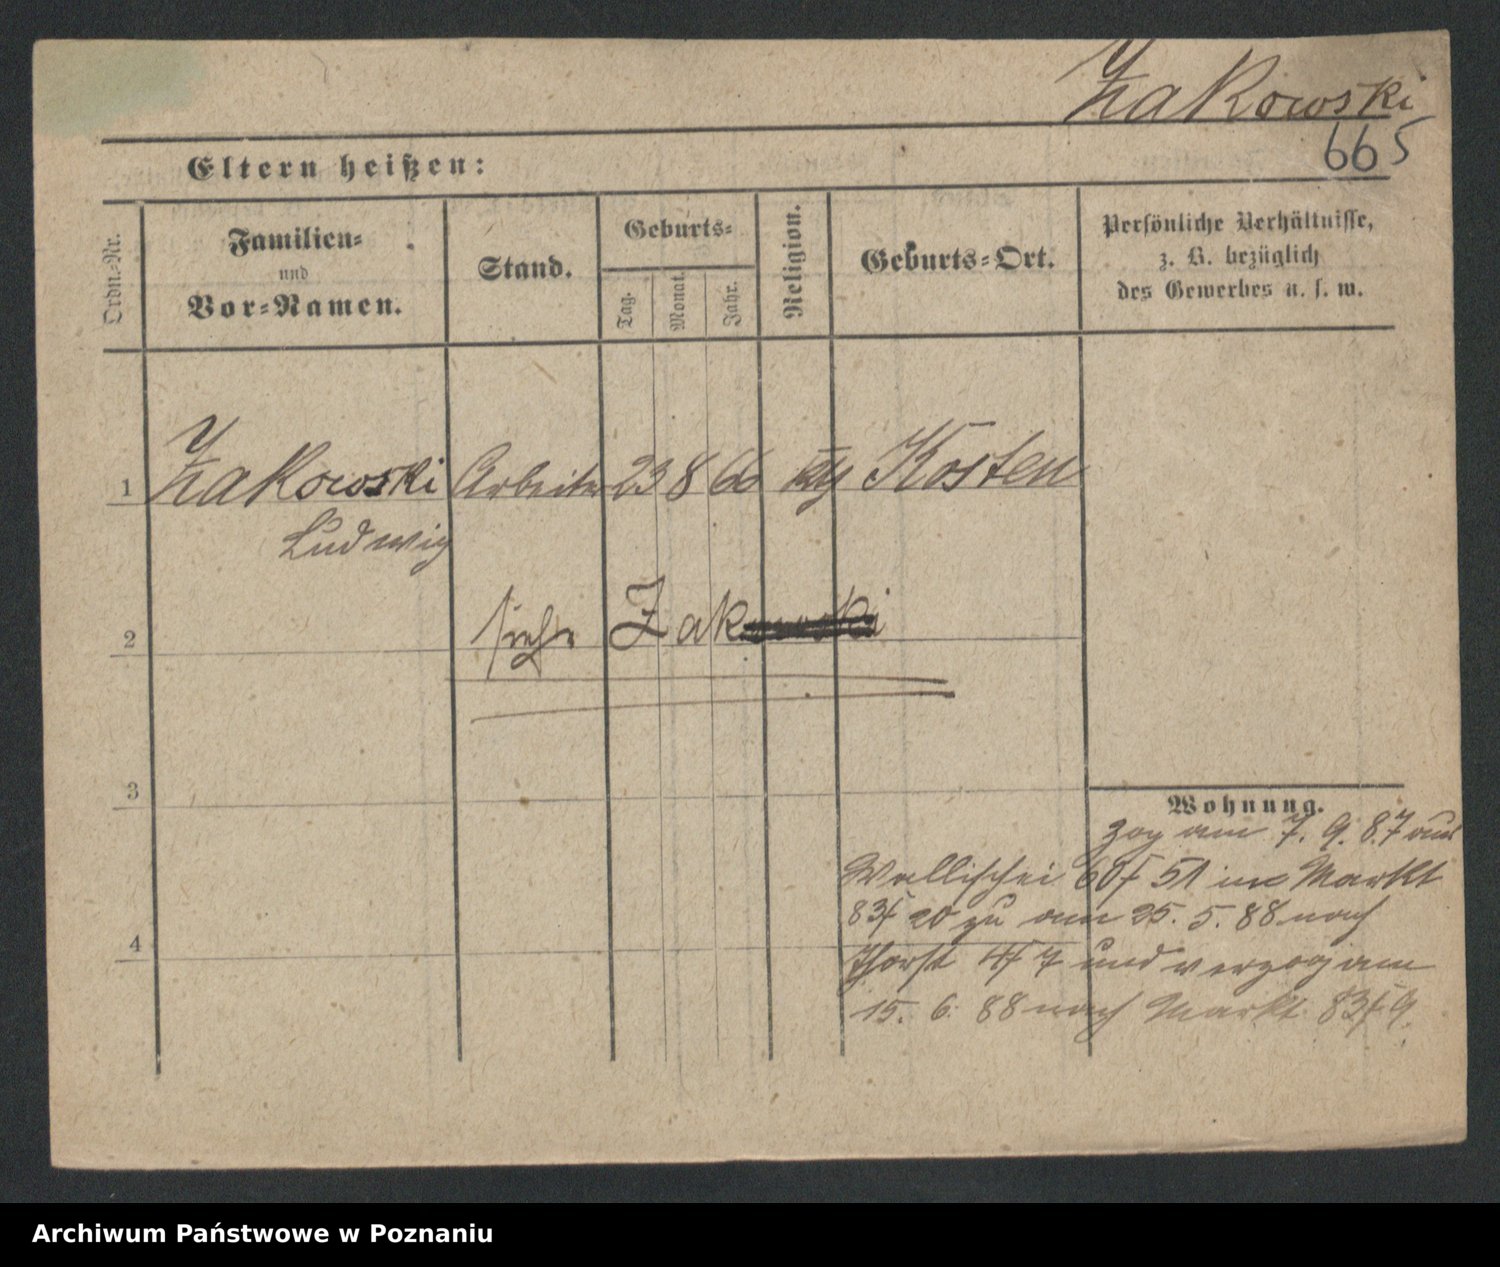 Żakowski
665
Eltern heißen:
Ordn.-Nr.
Familien-
und
Vor-Namen.
Stand.
Geburts-
Tag.
Monat.
Jahr.
Religion.
Geburts-Ort.
Persönliche Verhältnisse,
z. B. bezüglich
des Gewerbes u. s. w.
1 Żakowski Arbeiter 23 8 66 kth Kosten
Ludwig
2 siehe Zakowski
3
Wohnung.
zog am 7. 9. 87 aus
Wallischei 60/ 51 in Markt
83/ 20 zu am 25. 5. 88 nach
4 4/ 7 und verzog am
15. 6. 88 nach Markt 83/ 9.
Archiwum Państwowe w Poznaniu